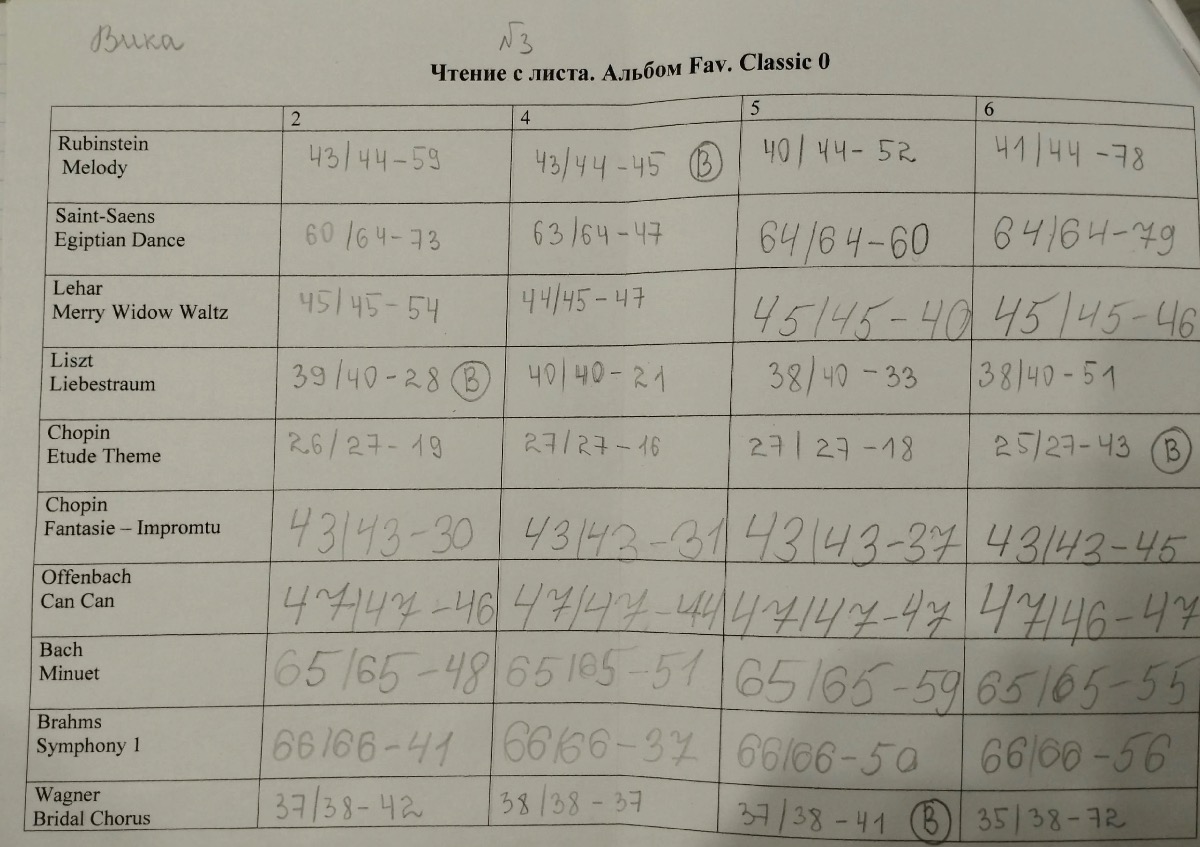 Вика
№3
Чтение с листа. Альбом Fav. Classic 0
2 4 5 6
Rubinstein
Melody
43/44-59 43/44-45 В 40/44-52 41/44-78
Saint-Saens
Egiptian Dance
60/64-73 63/64-47 64/64-60 64/64-79
Lehar
Merry Widow Waltz
45/45-54 44/45-47 45/45-40 45/45-46
Liszt
Liebestraum
39/40-28 В 40/40-21 38/40-33 38/40-51
Chopin
Etude Theme
26/27-19 27/27-16 27/27-18 25/27-43 В
Chopin
Fantasie – Impromtu
43/43-30 43/43-31 43/43-37 43/43-45
Offenbach
Can Can
47/47-46 47/47-44 47/47-47 47/46-47
Bach
Minuet
65/65-48 65/65-51 65/65-59 65/65-55
Brahms
Symphony 1
66/66-41 66/66-37 66/66-50 66/66-56
Wagner
Bridal Chorus
37/38-42 38/38-37 37/38-41 В 35/38-72